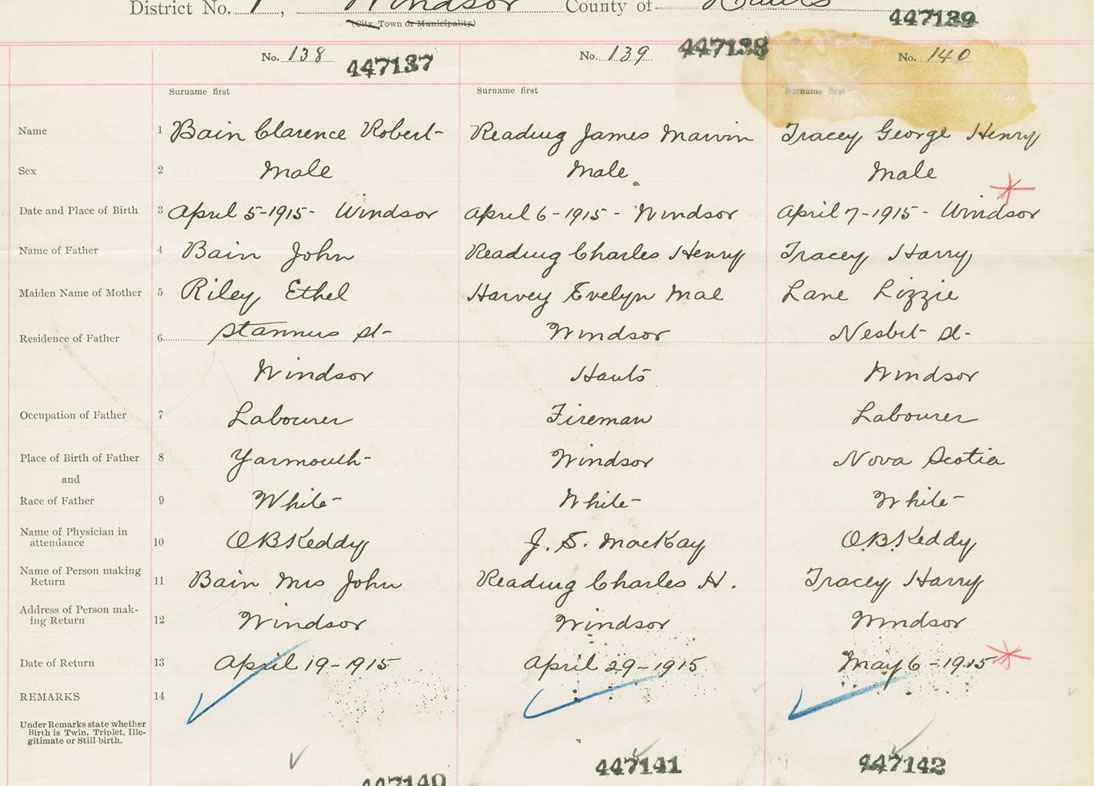 District No. 1, Windsor County of Hants
(City, Town or Municipality)
447139
No. 138 447137 No. 139 447138 No. 140
Surname first Surname first Surname first
Name 1 Bain Clarence Robert Reading James Marvin Tracey George Henry
Sex 2 Male Male Male
Date and Place of Birth 3 April 5-1915- Windsor April 6-1915- Windsor April 7-1915- Windsor
Name of Father 4 Bain John Reading Charles Henry Tracey Harry
Maiden Name of Mother 5 Riley Ethel Harvey Evelyn Mae Lane Lizzie
Residence of Father 6 Stannus St- Windsor Nesbit St-
Windsor Hants Windsor
Occupation of Father 7 Labourer Fireman Labourer
Place of Birth of Father 8 Yarmouth Windsor Nova Scotia
and
Race of Father 9 White White White
Name of Physician in attendance 10 O B Keddy J. S. MacKay O.B. Keddy
Name of Person making Return 11 Bain Mrs John Reading Charles H. Tracey Harry
Address of Person making Return 12 Windsor Windsor Windsor
Date of Return 13 April 19-1915 April 29-1915 May 6-1915
REMARKS 14
Under Remarks state whether
Birth is Twin, Triplet, Ille-
gitimate or Still birth.
447140 447141 447142